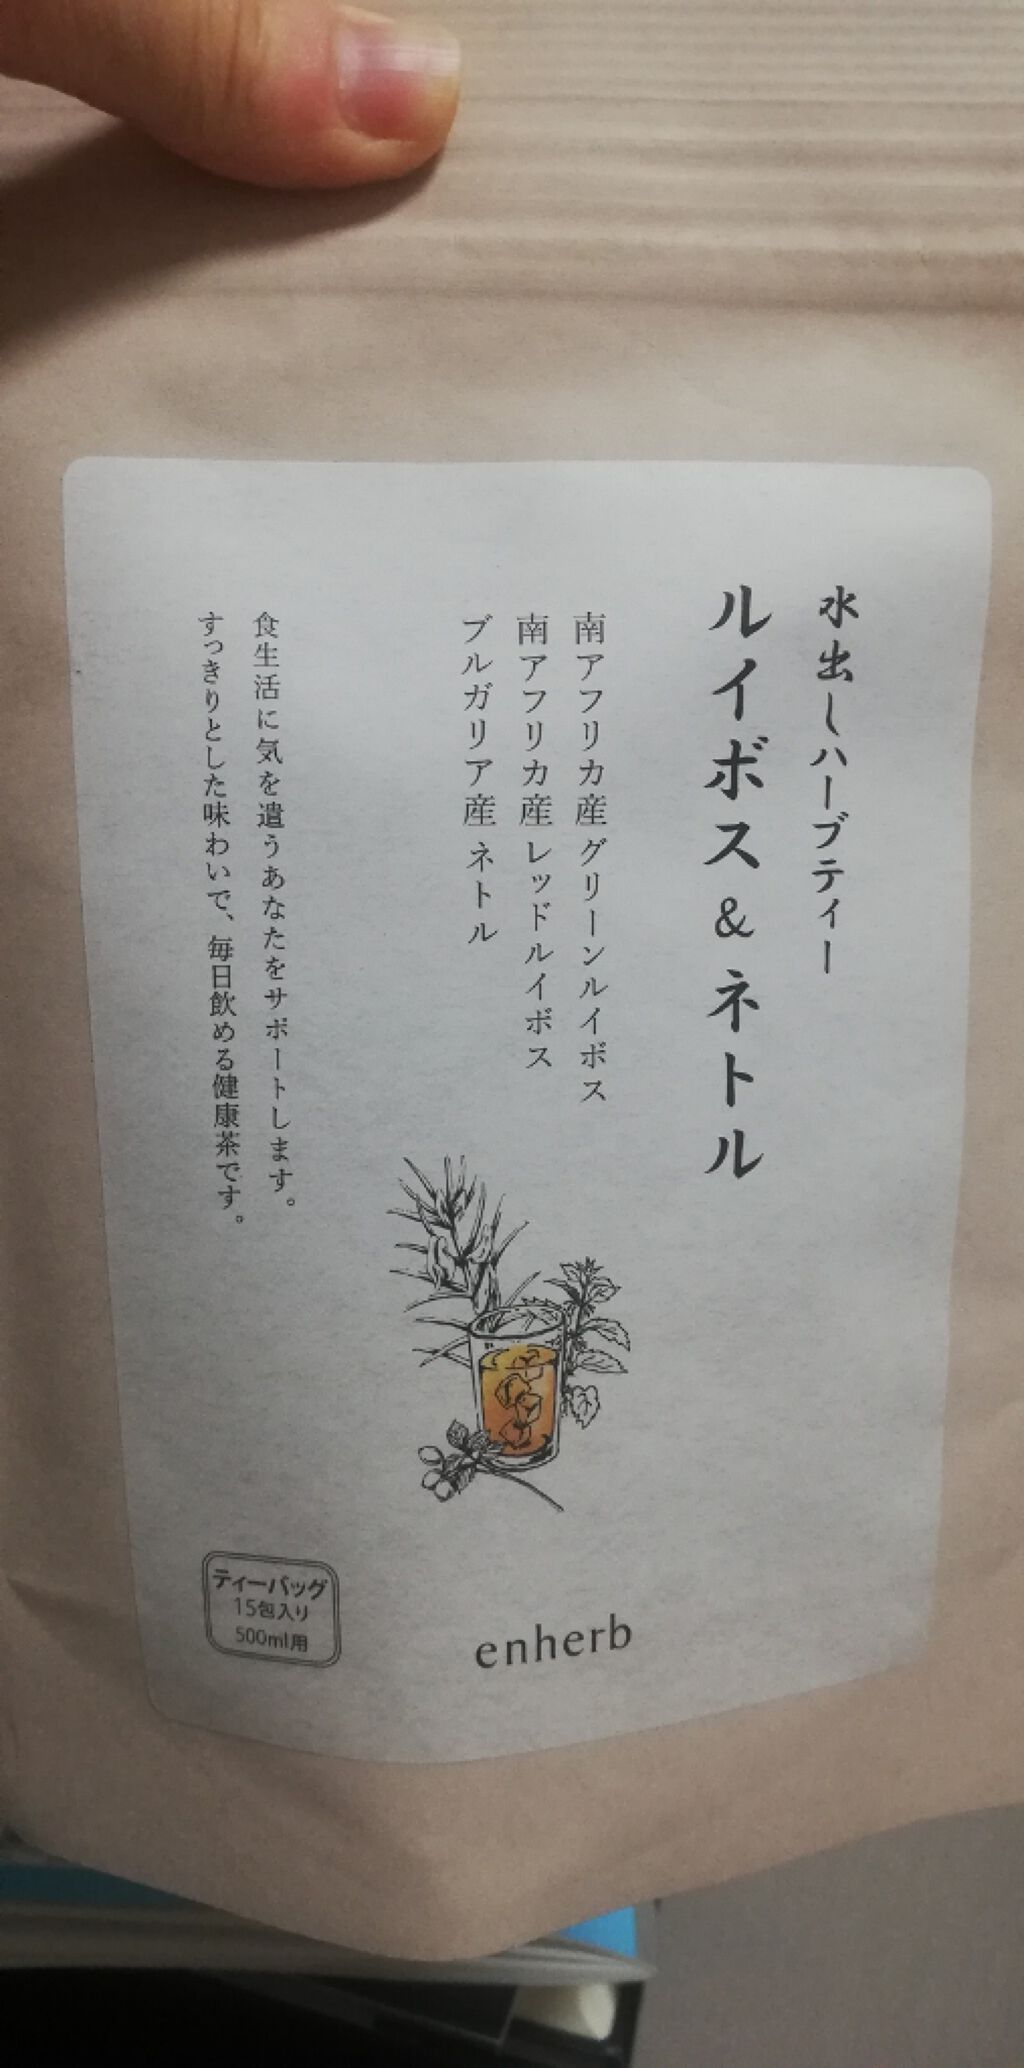 水出しハーブティー
ルイボス&ネトル
南アフリカ産 グリーンルイボス
南アフリカ産 レッドルイボス
ブルガリア産 ネトル
食生活に気を遣うあなたをサポートします。
すっきりとした味わいで、毎日飲める健康茶です。
ティーバッグ
15包入り
500ml用
enherb